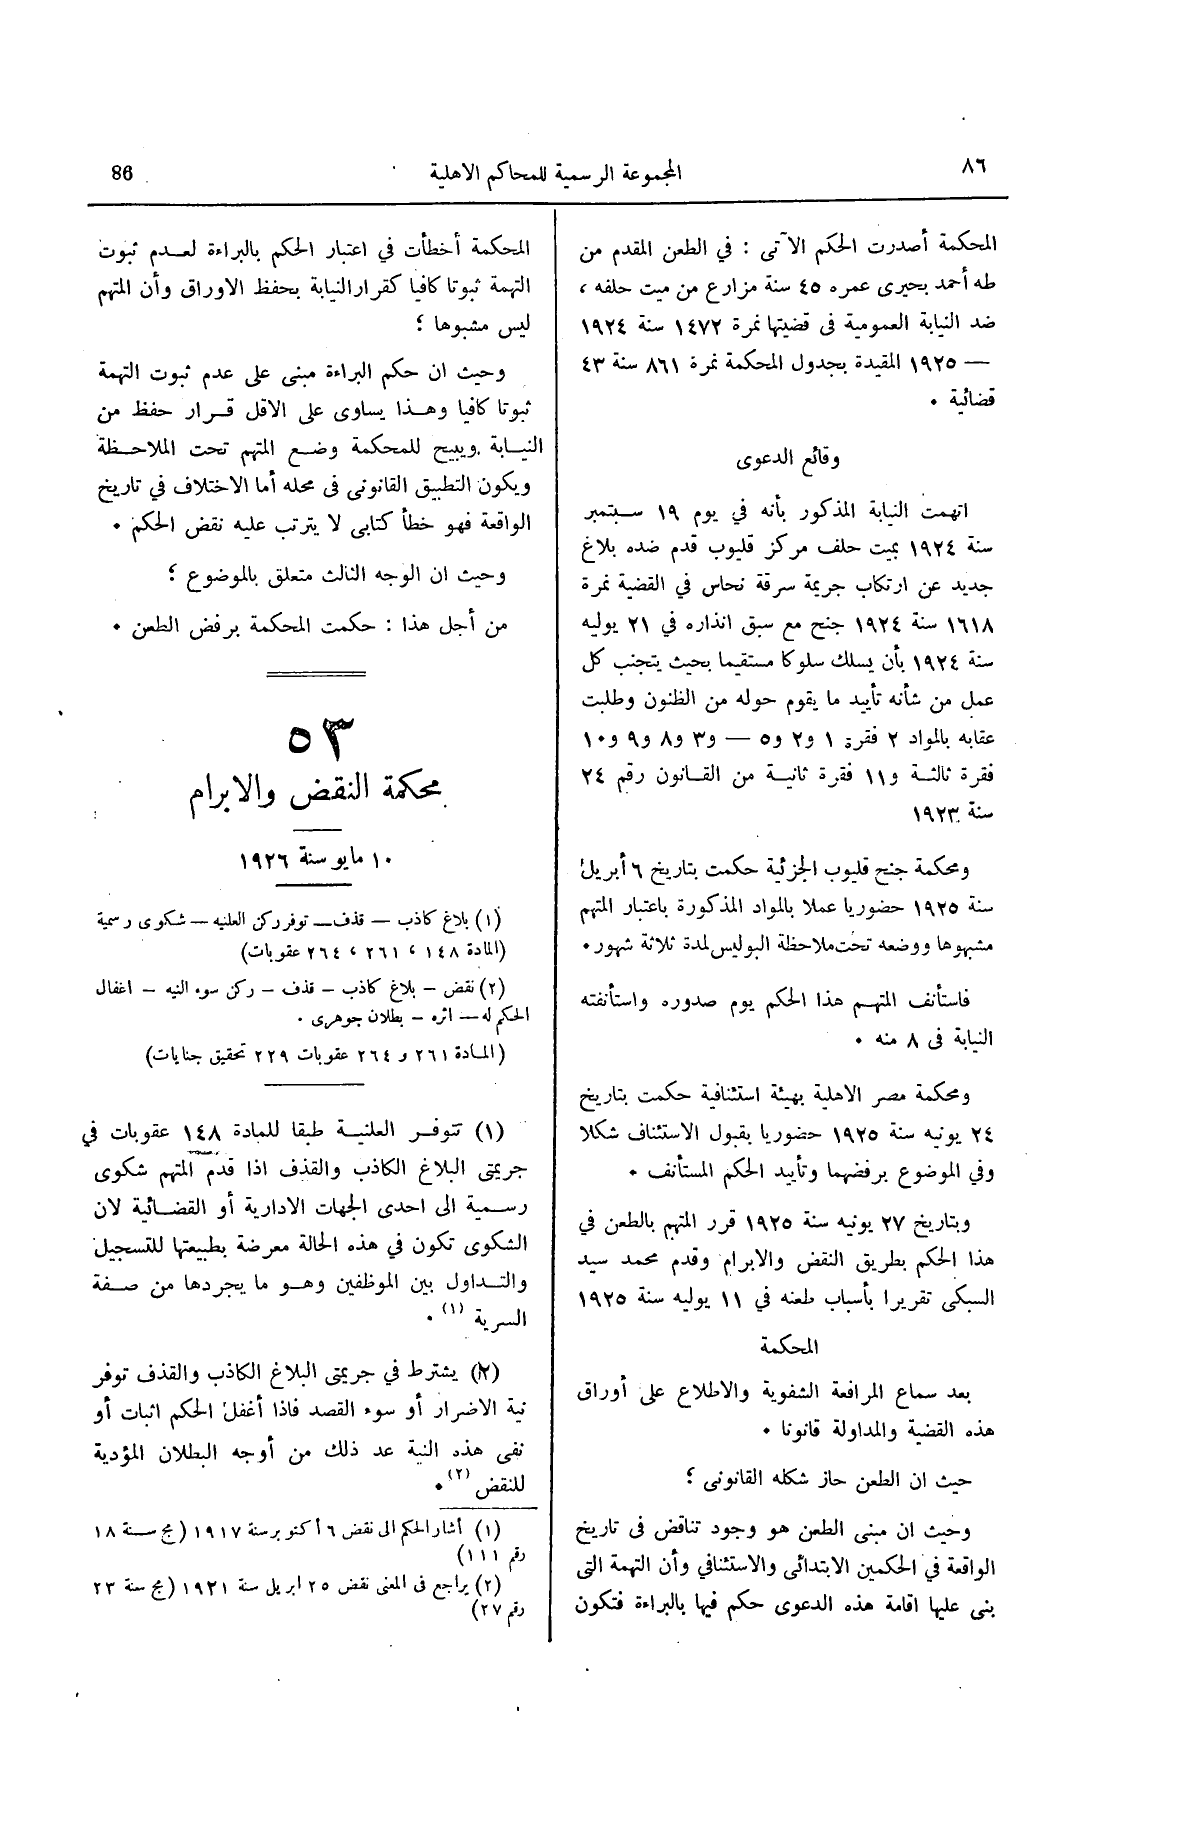 ٨٦
المجموعة الرسمية للمحاكم الاهلية
86
المحكمة أصدرت الحكم الآتى : في الطعن المقدم من
طه أحمد بحيرى عمره ٤٥ سنة مزارع من ميت حلفه ،
ضد النيابة العمومية فى قضيتها نمرة ١٤٧٢ سنة ١٩٢٤
— ١٩٢٥ المقيدة بجدول المحكمة نمرة ٨٦١ سنة ٤٣
قضائية .
وقائع الدعوى
اتهمت النيابة المذكور بأنه في يوم ١٩ سبتمبر
سنة ١٩٢٤ بميت حلف مركز قليوب قدم ضده بلاغ
جديد عن ارتكاب جريمة سرقة نحاس في القضية نمرة
١٦١٨ سنة ١٩٢٤ جنح مع سبق انذاره في ٢١ يوليه
سنة ١٩٢٤ بأن يسلك سلوكا مستقيما بحيث يتجنب كل
عمل من شأنه تأييد ما يقوم حوله من الظنون وطلبت
عقابه بالمواد ٢ فقرة ١ و٢ و٥ — و٣ و٨ و٩ و١٠
فقرة ثالثة و١١ فقرة ثانية من القانون رقم ٢٤
سنة ١٩٢٣
ومحكمة جنح قليوب الجزئية حكمت بتاريخ ٦ أبريل
سنة ١٩٢٥ حضوريا عملا بالمواد المذكورة باعتبار المتهم
مشبوها ووضعه تحت ملاحظة البوليس لمدة ثلاثة شهور .
فاستأنف المتهم هذا الحكم يوم صدوره واستأنفته
النيابة فى ٨ منه .
ومحكمة مصر الاهلية بهيئة استئنافية حكمت بتاريخ
٢٤ يونيه سنة ١٩٢٥ حضوريا بقبول الاستئناف شكلا
وفي الموضوع برفضهما وتأييد الحكم المستأنف .
وبتاريخ ٢٧ يونيه سنة ١٩٢٥ قرر المتهم بالطعن في
هذا الحكم بطريق النقض والابرام وقدم محمد سيد
السبكى تقريرا بأسباب طعنه في ١١ يوليه سنة ١٩٢٥
المحكمة
بعد سماع المرافعة الشفوية والاطلاع على أوراق
هذه القضية والمداولة قانونا .
حيث ان الطعن حاز شكله القانونى ؛
وحيث ان مبنى الطعن هو وجود تناقض فى تاريخ
الواقعة في الحكمين الابتدائى والاستئنافي وأن التهمة التى
بنى عليها اقامة هذه الدعوى حكم فيها بالبراءة فتكون
المحكمة أخطأت في اعتبار الحكم بالبراءة لعدم ثبوت
التهمة ثبوتا كافيا كقرار النيابة بحفظ الاوراق وأن المتهم
ليس مشبوها ؛
وحيث ان حكم البراءة مبنى على عدم ثبوت التهمة
ثبوتا كافيا وهذا يساوى على الاقل قرار حفظ من
النيابة ويبيح للمحكمة وضع المتهم تحت الملاحظة
ويكون التطبيق القانونى فى محله أما الاختلاف في تاريخ
الواقعة فهو خطأ كتابى لا يترتب عليه نقض الحكم .
وحيث ان الوجه الثالث متعلق بالموضوع ؛
من أجل هذا : حكمت المحكمة برفض الطعن .
٥٣
محكمة النقض والابرام
١٠ مايو سنة ١٩٢٦
(١) بلاغ كاذب — قذف — توفر ركن العلنيه — شكوى رسمية
(المادة ١٤٨ ، ٢٦١ ، ٢٦٤ عقوبات)
(٢) نقض — بلاغ كاذب — قذف — ركن سوء النيه — اغفال
الحكم له — اثره — بطلان جوهرى .
(المادة ٢٦١ و ٢٦٤ عقوبات ٢٢٩ تحقيق جنايات)
(١) تتوفر العلنية طبقا للمادة ١٤٨ عقوبات في
جريمتى البلاغ الكاذب والقذف اذا قدم المتهم شكوى
رسمية الى احدى الجهات الادارية أو القضائية لان
الشكوى تكون في هذه الحالة معرضة بطبيعتها للتسجيل
والتداول بين الموظفين وهو ما يجردها من صفة
السرية (١) .
(٢) يشترط في جريمتى البلاغ الكاذب والقذف توفر
نية الاضرار أو سوء القصد فاذا أغفل الحكم اثبات أو
نفى هذه النية عد ذلك من أوجه البطلان المؤدية
للنقض (٢) .
(١) أشار الحكم الى نقض ٦ أكتوبر سنة ١٩١٧ (مج سنة ١٨
رقم ١١١)
(٢) يراجع فى المعنى نقض ٢٥ ابريل سنة ١٩٢١ (مج سنة ٢٣
رقم ٢٧)